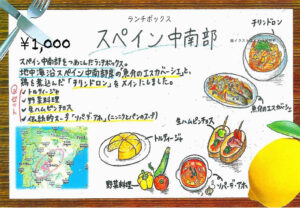 ランチボックス
スペイン中南部
¥1,000
チリンドロン
スペイン中南部をつめこんだランチボックス。
地中海沿スペイン中南部喜の魚介のエスカベーシュと、
鶏を煮込んだ「チリンドロン」をメインとしました。
✓トルティージャ
✓野菜料理
✓生ハムピンチョス
✓伝統的スープ「ソパ・デ・アホ」(ニンニクとパンのスープ)
魚介のエスカベーシュ
生ハムピンチョス
トルティージャ
野菜料理
ソパ・デ・アホ